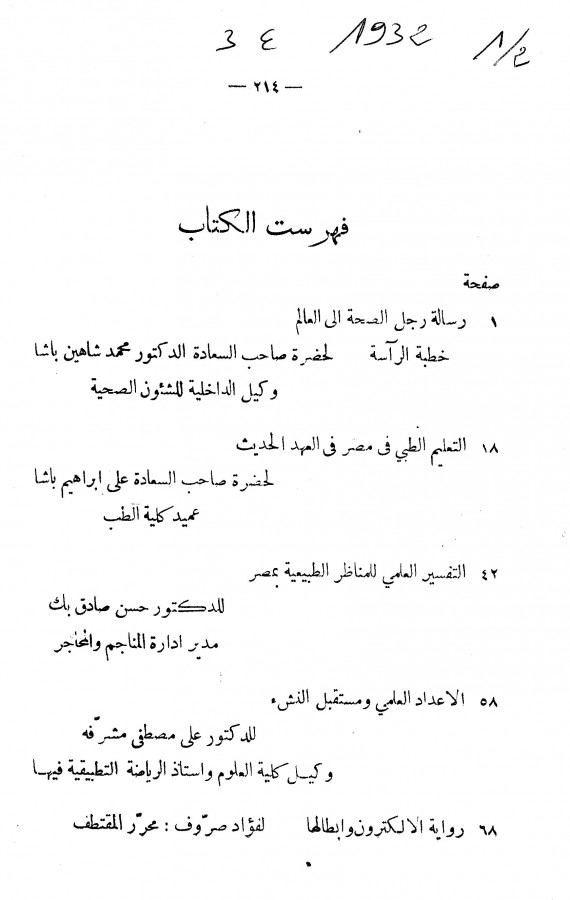 3 ع 1932 1/2
— ٢١٤ —
فهرست الكتاب
صفحة
١ رسالة رجل الصحة الى العالم
خطبة الرآسة لحضرة صاحب السعادة الدكتور محمد شاهين باشا
وكيل الداخلية للشئون الصحية
١٨ التعليم الطبي فى مصر فى العهد الحديث
لحضرة صاحب السعادة على ابراهيم باشا
عميد كلية الطب
٤٢ التفسير العلمي للمناظر الطبيعية بمصر
للدكتور حسن صادق بك
مدير ادارة المناجم والمحاجر
٥٨ الاعداد العلمي ومستقبل النشء
للدكتور على مصطفى مشرّفه
وكيل كلية العلوم واستاذ الرياضة التطبيقية فيها
٦٨ رواية الالكترون وابطالها لفؤاد صرّوف : محرّر المقتطف